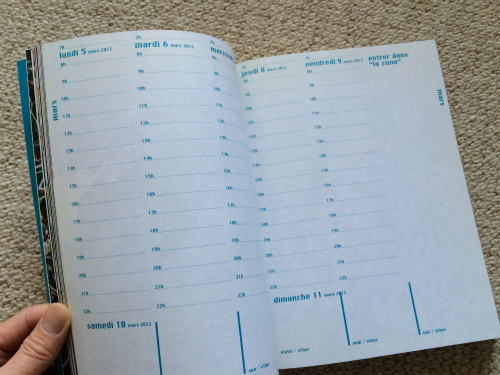 mars
7h
lundi 5 mars 2012
8h
9h
10h
11h
12h
13h
14h
15h
16h
17h
18h
19h
20h
21h
22h
7h
mardi 6 mars 2012
8h
9h
10h
11h
12h
13h
14h
15h
16h
17h
18h
19h
20h
21h
22h
7h
8h
9h
10h
11h
12h
13h
14h
15h
16h
17h
18h
19h
20h
21h
22h
samedi 10 mars 2012
soir / other
7h
jeudi 8 mars 2012
8h
9h
10h
11h
12h
13h
14h
15h
16h
17h
18h
19h
20h
21h
22h
7h
vendredi 9 mars 2012
8h
9h
10h
11h
12h
13h
14h
15h
16h
17h
18h
19h
20h
21h
22h
entrer dans
"la zone"
mars
dimanche 11 mars 2012
matin / other
midi / other
soir / other